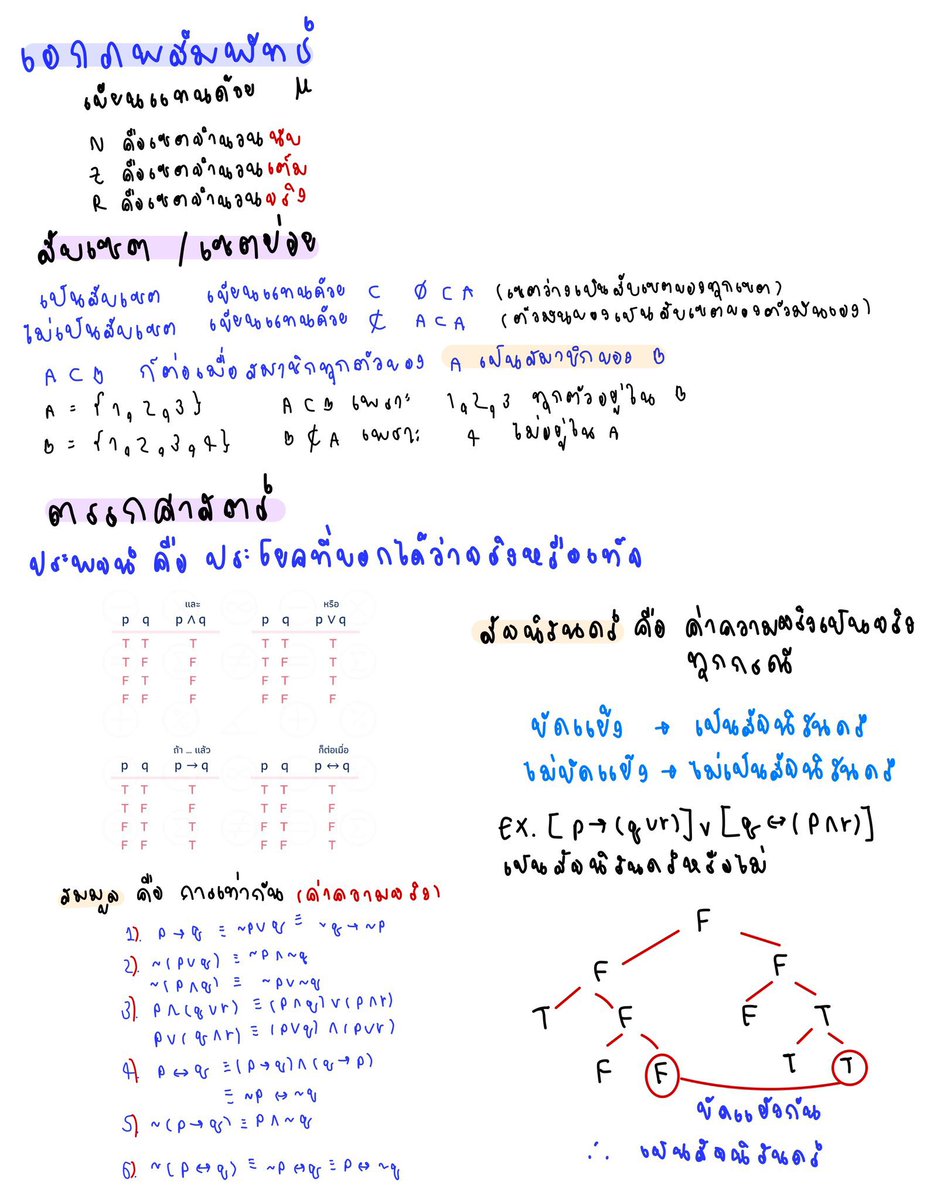 เอกภพสัมพัทธ์
เขียนแทนด้วย μ
N คือเซตจำนวนนับ
Z คือเซตจำนวนเต็ม
R คือเซตจำนวนจริง
สับเซต / เซตย่อย
เป็นสับเซต เขียนแทนด้วย ⊂ ∅ ⊂ A (เซตว่างเป็นสับเซตของทุกเซต)
ไม่เป็นสับเซต เขียนแทนด้วย ⊄ A ⊂ A (ตัวมันเองเป็นสับเซตของตัวมันเอง)
A ⊂ B ก็ต่อเมื่อสมาชิกทุกตัวของ A เป็นสมาชิกของ B
A = {1,2,3} A ⊂ B เพราะ 1,2,3 ทุกตัวอยู่ใน B
B = {1,2,3,4} B ⊄ A เพราะ 4 ไม่อยู่ใน A
ตรรกศาสตร์
ประพจน์ คือ ประโยคที่บอกได้ว่าจริงหรือเท็จ
และ
p q p ∧ q
T T T
T F F
F T F
F F F
หรือ
p q p ∨ q
T T T
T F T
F T T
F F F
ถ้า ... แล้ว
p q p → q
T T T
T F F
F T T
F F T
ก็ต่อเมื่อ
p q p ↔ q
T T T
T F F
F T F
F F T
สมมูล คือ การเท่ากัน (ค่าความจริง)
1). p → q ≡ ~p∨q ≡ ~q → ~p
2). ~(p∨q) ≡ ~p∧~q
~(p∧q) ≡ ~p∨~q
3). p∧(q∨r) ≡ (p∧q)∨(p∧r)
p∨(q∧r) ≡ (p∨q)∧(p∨r)
4). p↔q ≡ (p→q)∧(q→p)
≡ ~p ↔ ~q
5). ~(p→q) ≡ p∧~q
6). ~(p↔q) ≡ ~p↔q ≡ p↔~q
สัจนิรันดร์ คือ ค่าความจริงเป็นจริง
ทุกกรณี
ขัดแย้ง → เป็นสัจนิรันดร์
ไม่ขัดแย้ง → ไม่เป็นสัจนิรันดร์
EX. [p→(q∨r)]∨[q↔(p∧r)]
เป็นสัจนิรันดร์หรือไม่
F
F F
T F F T
F F T T
ขัดแย้งกัน
∴ เป็นสัจนิรันดร์